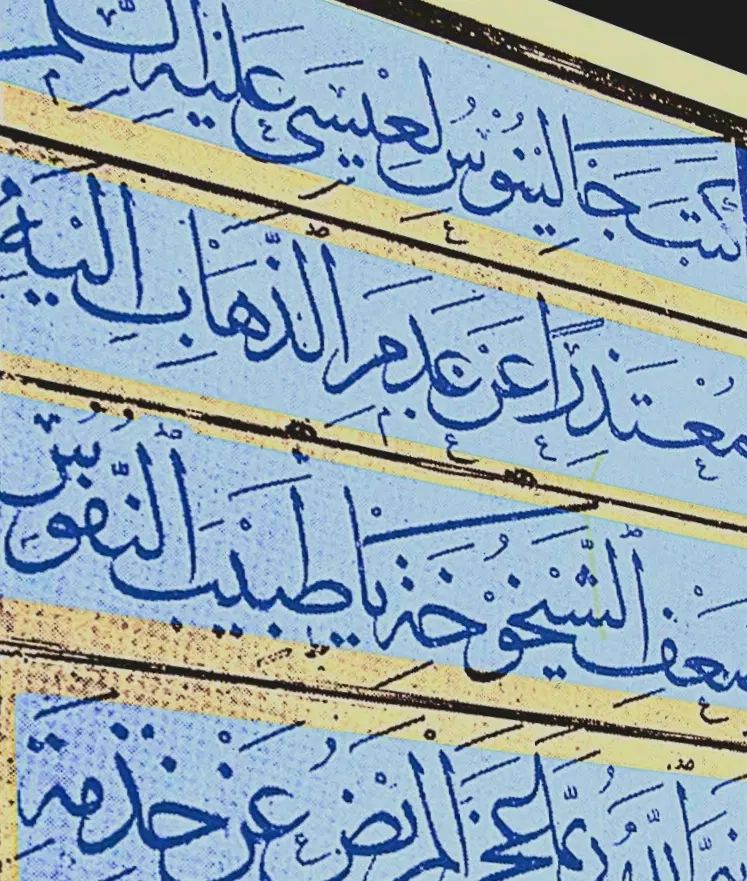 كَتَبَ جَالِينُوسُ لِعِيسَى عَلَيْهِ السَّلَامُ
مُعْتَذِرًا عَنْ عَدَمِ الذَّهَابِ إِلَيْهِ
ضَعْفِ الشَّيْخُوخَةِ يَا طَبِيبَ النُّفُوسِ
اللَّهِ رُبَّمَا عَجَزَ الْمَرِيضُ عَنْ خِدْمَةِ